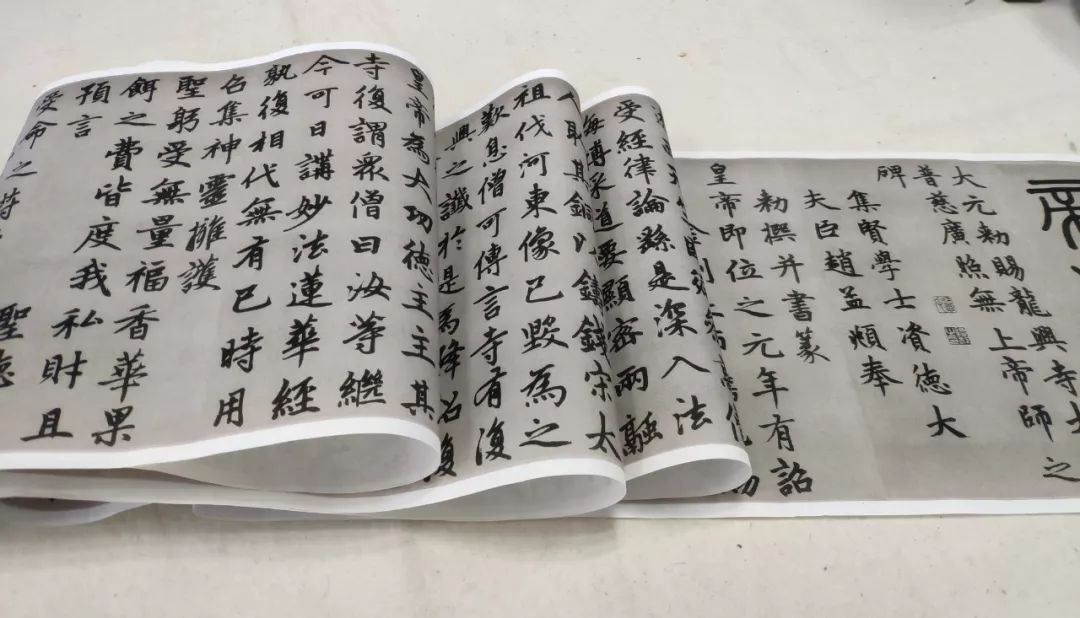 大元勅賜龍興寺大
普慈廣照無上帝師之
碑
集賢學士資德大
夫臣趙孟頫奉
勅撰并書篆
皇帝即位之元年有詔
受經律論繇是深入法
海博采道要顯密兩融
取其銅以鑄錢宋太
祖伐河東像已毀為之
歎息僧可傳言寺有復
興之讖於是為降詔復
皇帝為大功德主主其
寺復謂眾僧曰汝等繼
今可日講妙法蓮華經
孰復相代無有已時用
召集神靈擁護
聖躬受無量福香華果
餌之費皆度我私財且
預言
受命之符
聖德